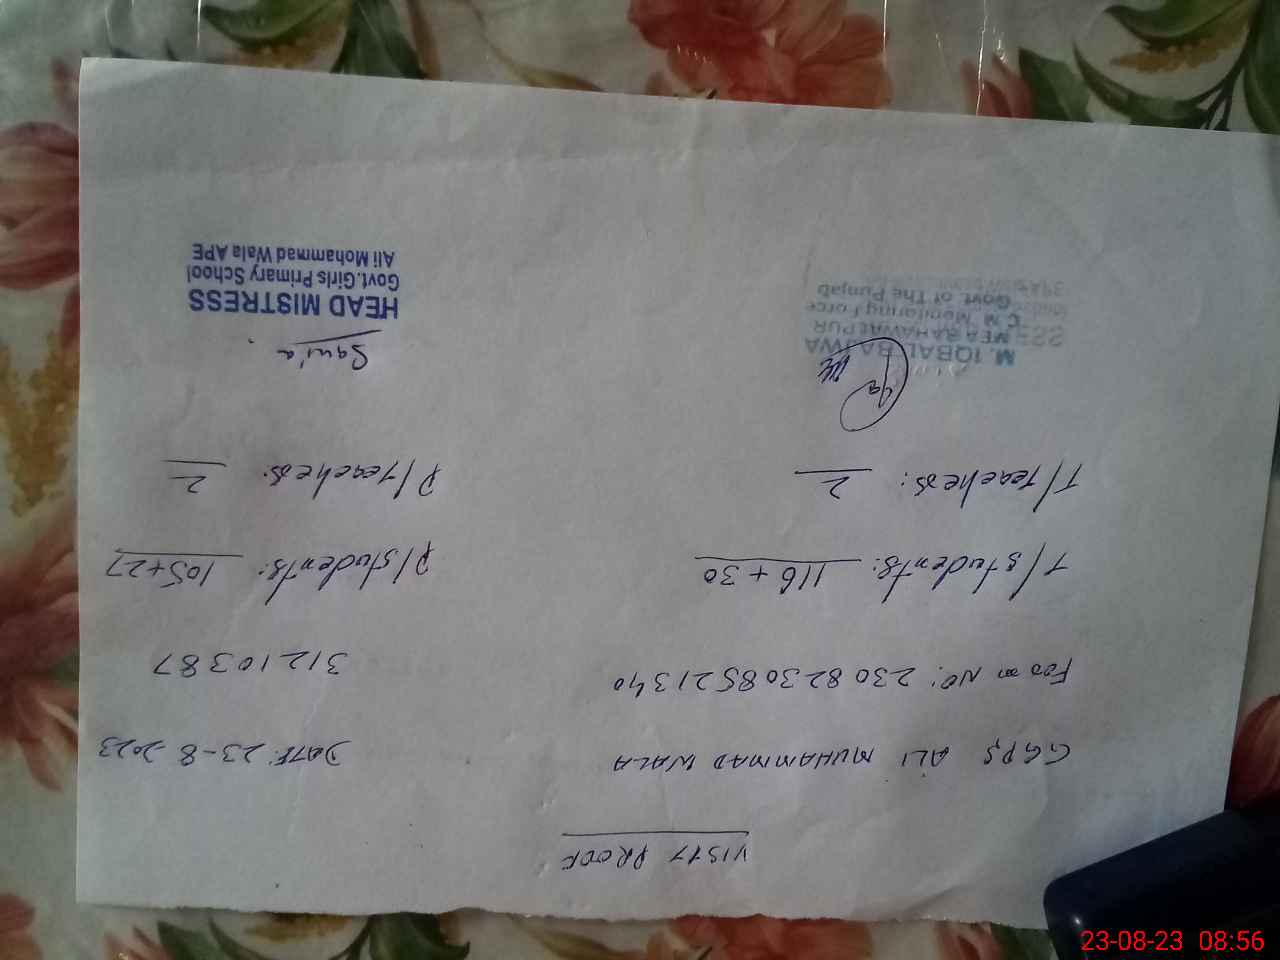 VISIT PROOF
GGPS ALI MUHAMMAD WALA DATE: 23-8-2023
Form No: 23082308521340 31210387
T/students: 116 + 30 P/students: 105+27
T/teachers: 2 P/teachers: 2
M. IQBAL BAJWA
MEA BAHAWALPUR
C.M. Monitoring Force
Govt. of The Punjab
HEAD MISTRESS
Govt.Girls Primary School
Ali Mohammad Wala APE
23-08-23 08:56